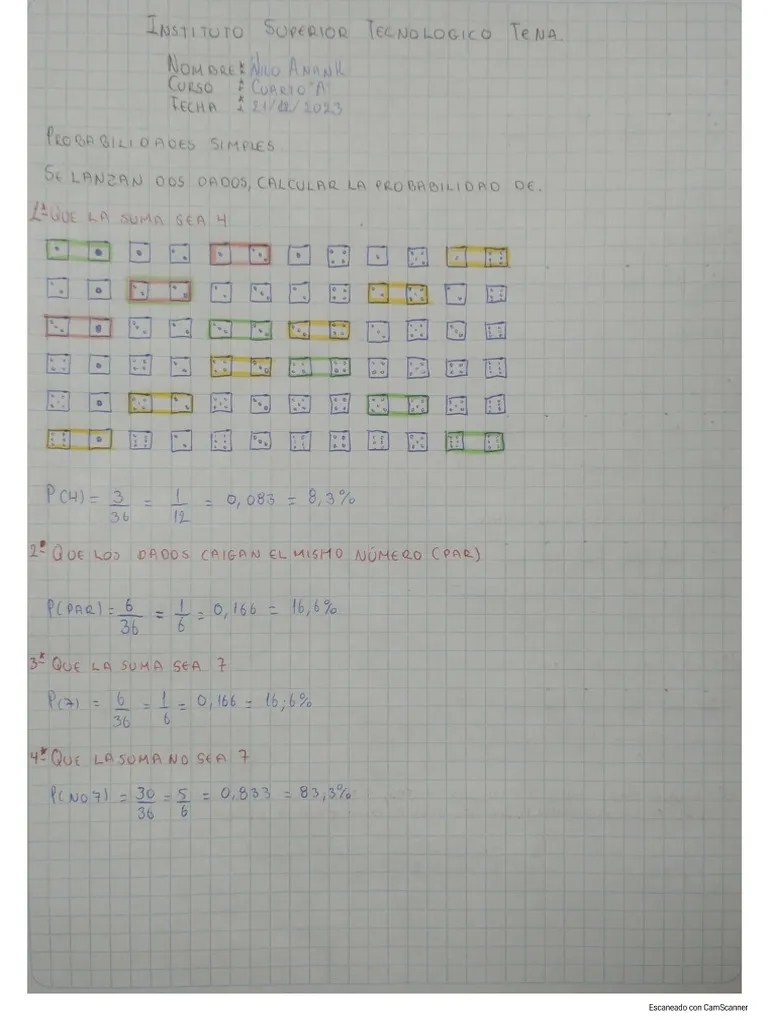 INSTITUTO SUPERIOR TECNOLOGICO TENA
NOMBRE: NILO ANANK
CURSO : CUARTO "A"
FECHA : 21/12/2023
PROBABILIDADES SIMPLES
SE LANZAN DOS DADOS, CALCULAR LA PROBABILIDAD DE.
1ª QUE LA SUMA SEA 4
P(4) = 3/36 = 1/12 = 0,083 = 8,3%
2ª QUE LOS DADOS CAIGAN EL MISMO NÚMERO (PAR)
P(PAR) = 6/36 = 1/6 = 0,166 = 16,6%
3ª QUE LA SUMA SEA 7
P(7) = 6/36 = 1/6 = 0,166 = 16,6%
4ª QUE LA SUMA NO SEA 7
P(NO7) = 30/36 = 5/6 = 0,833 = 83,3%
Escaneado con CamScanner